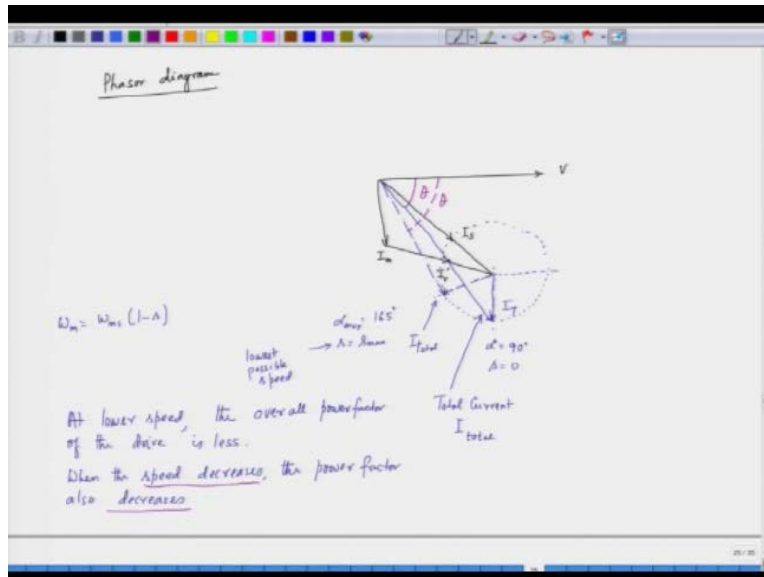 Phasor diagram
V
θ
θ
I_s
I_m
I_r'
I_T
ω_m = ω_ms (1-s)
α_max = 165°
s = s_max
lowest
possible
speed
I_total
α = 90°
s = 0
Total Current
I_total
At lower speed, the overall powerfactor
of the drive is less.
When the speed decreases, the power factor
also decreases
25 / 25